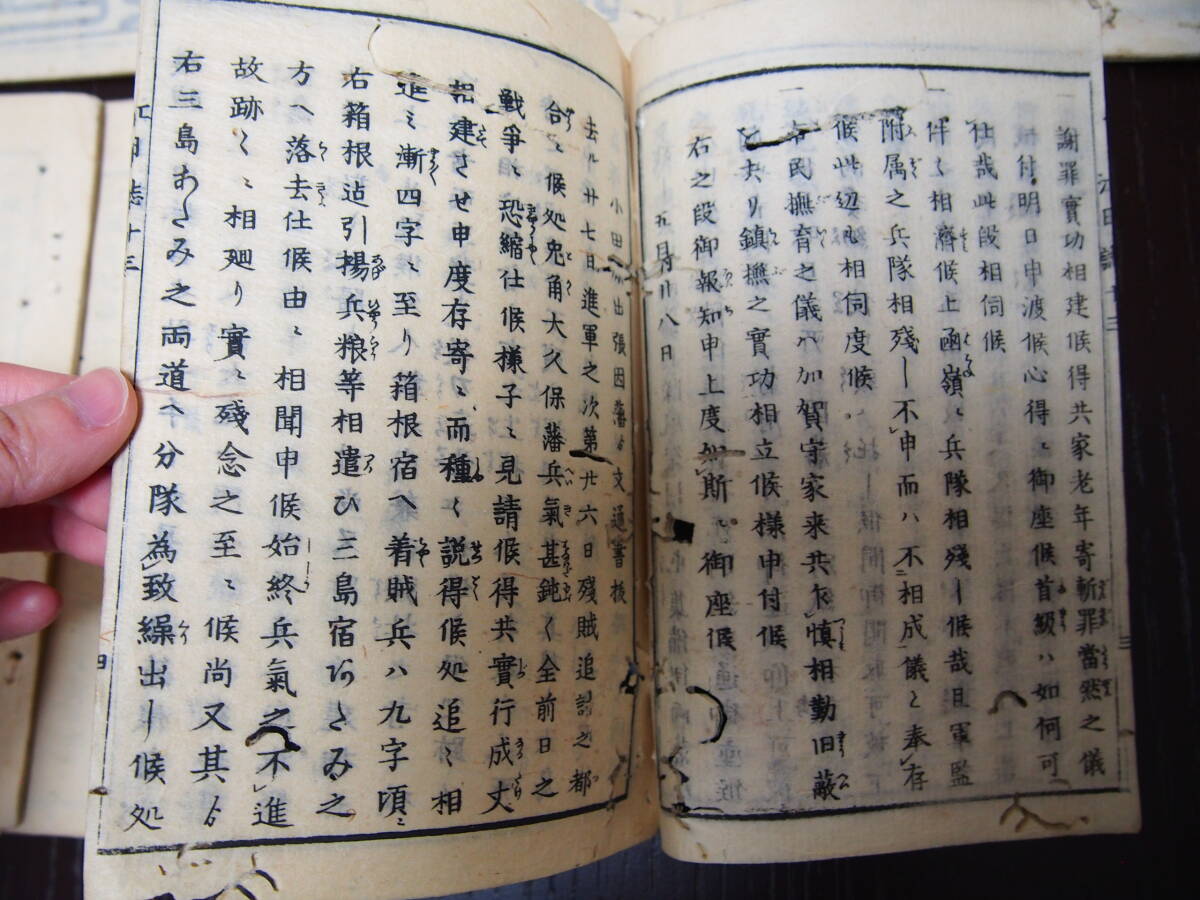 謝罪實功相建候得共家老年寄斬罪當然之儀
付明日申渡候心得ニ御座候首級ハ如何可
仕哉此段相伺候
一
件々相濟候上函嶺ニ兵隊相残シ候哉且軍監
附属之兵隊相残シ不申而ハ不相成儀ニ奉存
候此辺も相伺度候
一
市民撫育之儀ハ加賀守家来共下慎相勤旧蔽
去リ鎮撫之實功相立候様申付候
右之段御報知申上度如斯ニ御座候
五月廿八日
小田出張因藩ゟ文通書抜
去ル廿七日進軍之次第廿六日残賊追討之都
合ニ候処兎角大久保藩兵氣甚鈍く全前日之
戰爭ニ恐縮仕候様子ニ見請候得共實行成丈
相建させ申度存寄ニ而種々説得候処追々相
進ミ漸四字ニ至り箱根宿へ着賊兵ハ九字頃ニ
右箱根迠引揚兵粮等相遣ひ三島宿あたみ之
方へ落去仕候由ニ相聞申候始終兵氣之不進
故跡々ニ相廻り實ニ残念之至ニ候尚又其ゟ
右三島あたみ之両道へ分隊為致繰出シ候処
江日志十三
四